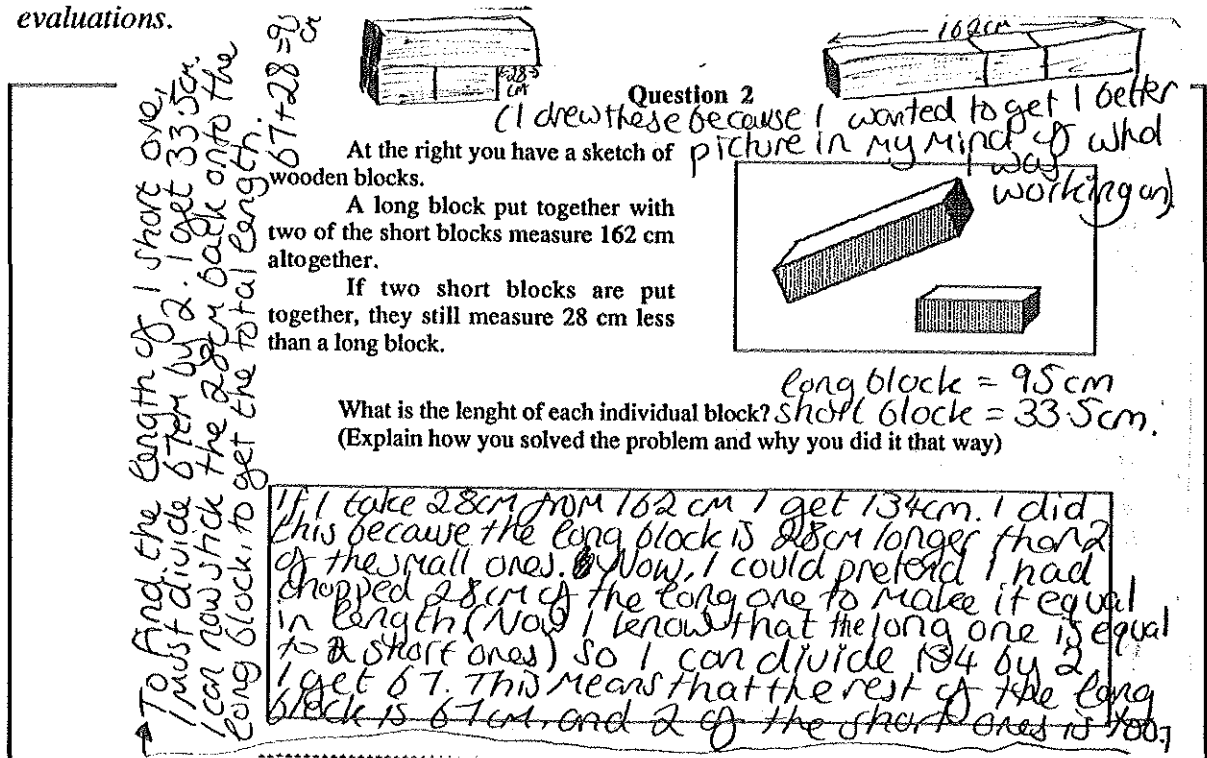 evaluations.
28
cm
162cm
Question 2
(I drew these because I wanted to get 1 better
picture in my mind of what
I was
working on).
At the right you have a sketch of
wooden blocks.
A long block put together with
two of the short blocks measure 162 cm
altogether.
If two short blocks are put
together, they still measure 28 cm less
than a long block.
long block = 95 cm
What is the lenght of each individual block? short block = 33.5cm.
(Explain how you solved the problem and why you did it that way)
If I take 28cm from 162 cm I get 134cm. I did
this because the long block is 28cm longer than 2
of the small ones. Now, I could pretend I had
chopped 28cm of the long one to make it equal
in length (Now I know that the long one is equal
to 2 short ones) so I can divide 134 by 2
I get 67. This means that the rest of the long
block is 67cm, and 2 of the short ones is too.
To find the length of 1 short one,
I must divide 67cm by 2. I get 33.5cm.
I can now stick the 28cm back onto the
long block, to get the total length.
67+28=95
cm